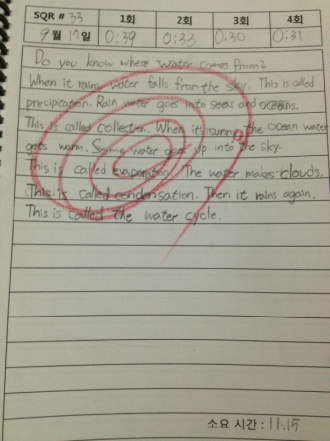 SQR # 33 1회 2회 3회 4회
9월 17일 0:39 0:33 0:30 0:31
Do you know where water comes from?
When it rains, water falls from the sky. This is called
precipitation. Rain water goes into seas and oceans.
This is called collection. When it's sunny the ocean water
gets warm. Some water goes up into the sky.
This is called evaporation. The water makes clouds.
This is called condensation. Then it rains again.
This is called the water cycle.
소요 시간 : 11:15